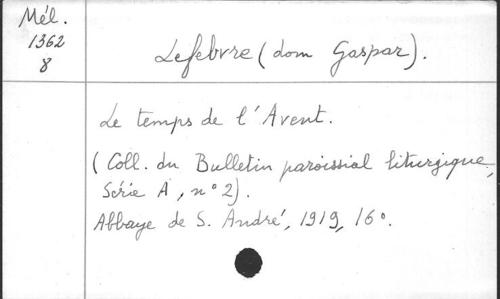 Mél.
1362
8
Lefebvre (dom Gaspar).
Le temps de l'Avent.
(Coll. du Bulletin paroissial liturgique,
Série A, n° 2).
Abbaye de S. André, 1919, 16°.